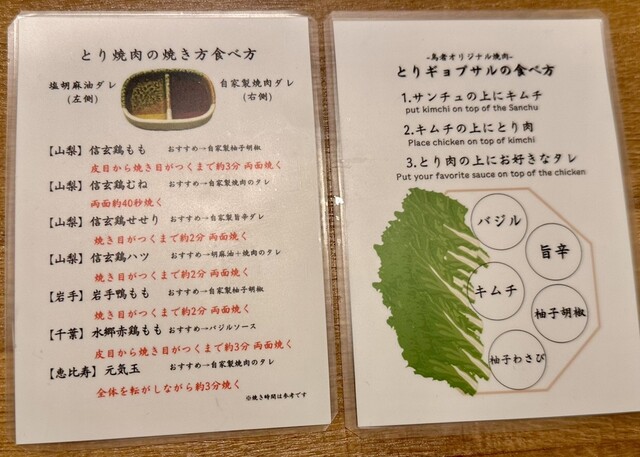 とり焼肉の焼き方食べ方
塩胡麻油ダレ
(左側)
自家製焼肉ダレ
(右側)
【山梨】信玄鶏もも おすすめ→自家製柚子胡椒
皮目から焼き目がつくまで約3分 両面焼く
【山梨】信玄鶏むね おすすめ→自家製焼肉のタレ
両面約40秒焼く
【山梨】信玄鶏せせり おすすめ→自家製旨辛ダレ
焼き目がつくまで約2分 両面焼く
【山梨】信玄鶏ハツ おすすめ→胡麻油+焼肉のタレ
焼き目がつくまで約2分 両面焼く
【岩手】岩手鴨もも おすすめ→自家製柚子胡椒
焼き目がつくまで約2分 両面焼く
【千葉】水郷赤鶏もも おすすめ→バジルソース
皮目から焼き目がつくまで約3分 両面焼く
【恵比寿】元気玉 おすすめ→自家製焼肉のタレ
全体を転がしながら約3分焼く
※焼き時間は参考です
-鳥者オリジナル焼肉-
とりギョプサルの食べ方
1.サンチュの上にキムチ
put kimchi on top of the Sanchu
2.キムチの上にとり肉
Place chicken on top of kimchi
3.とり肉の上にお好きなタレ
Put your favorite sauce on top of the chicken
バジル
旨辛
キムチ
柚子胡椒
柚子わさび